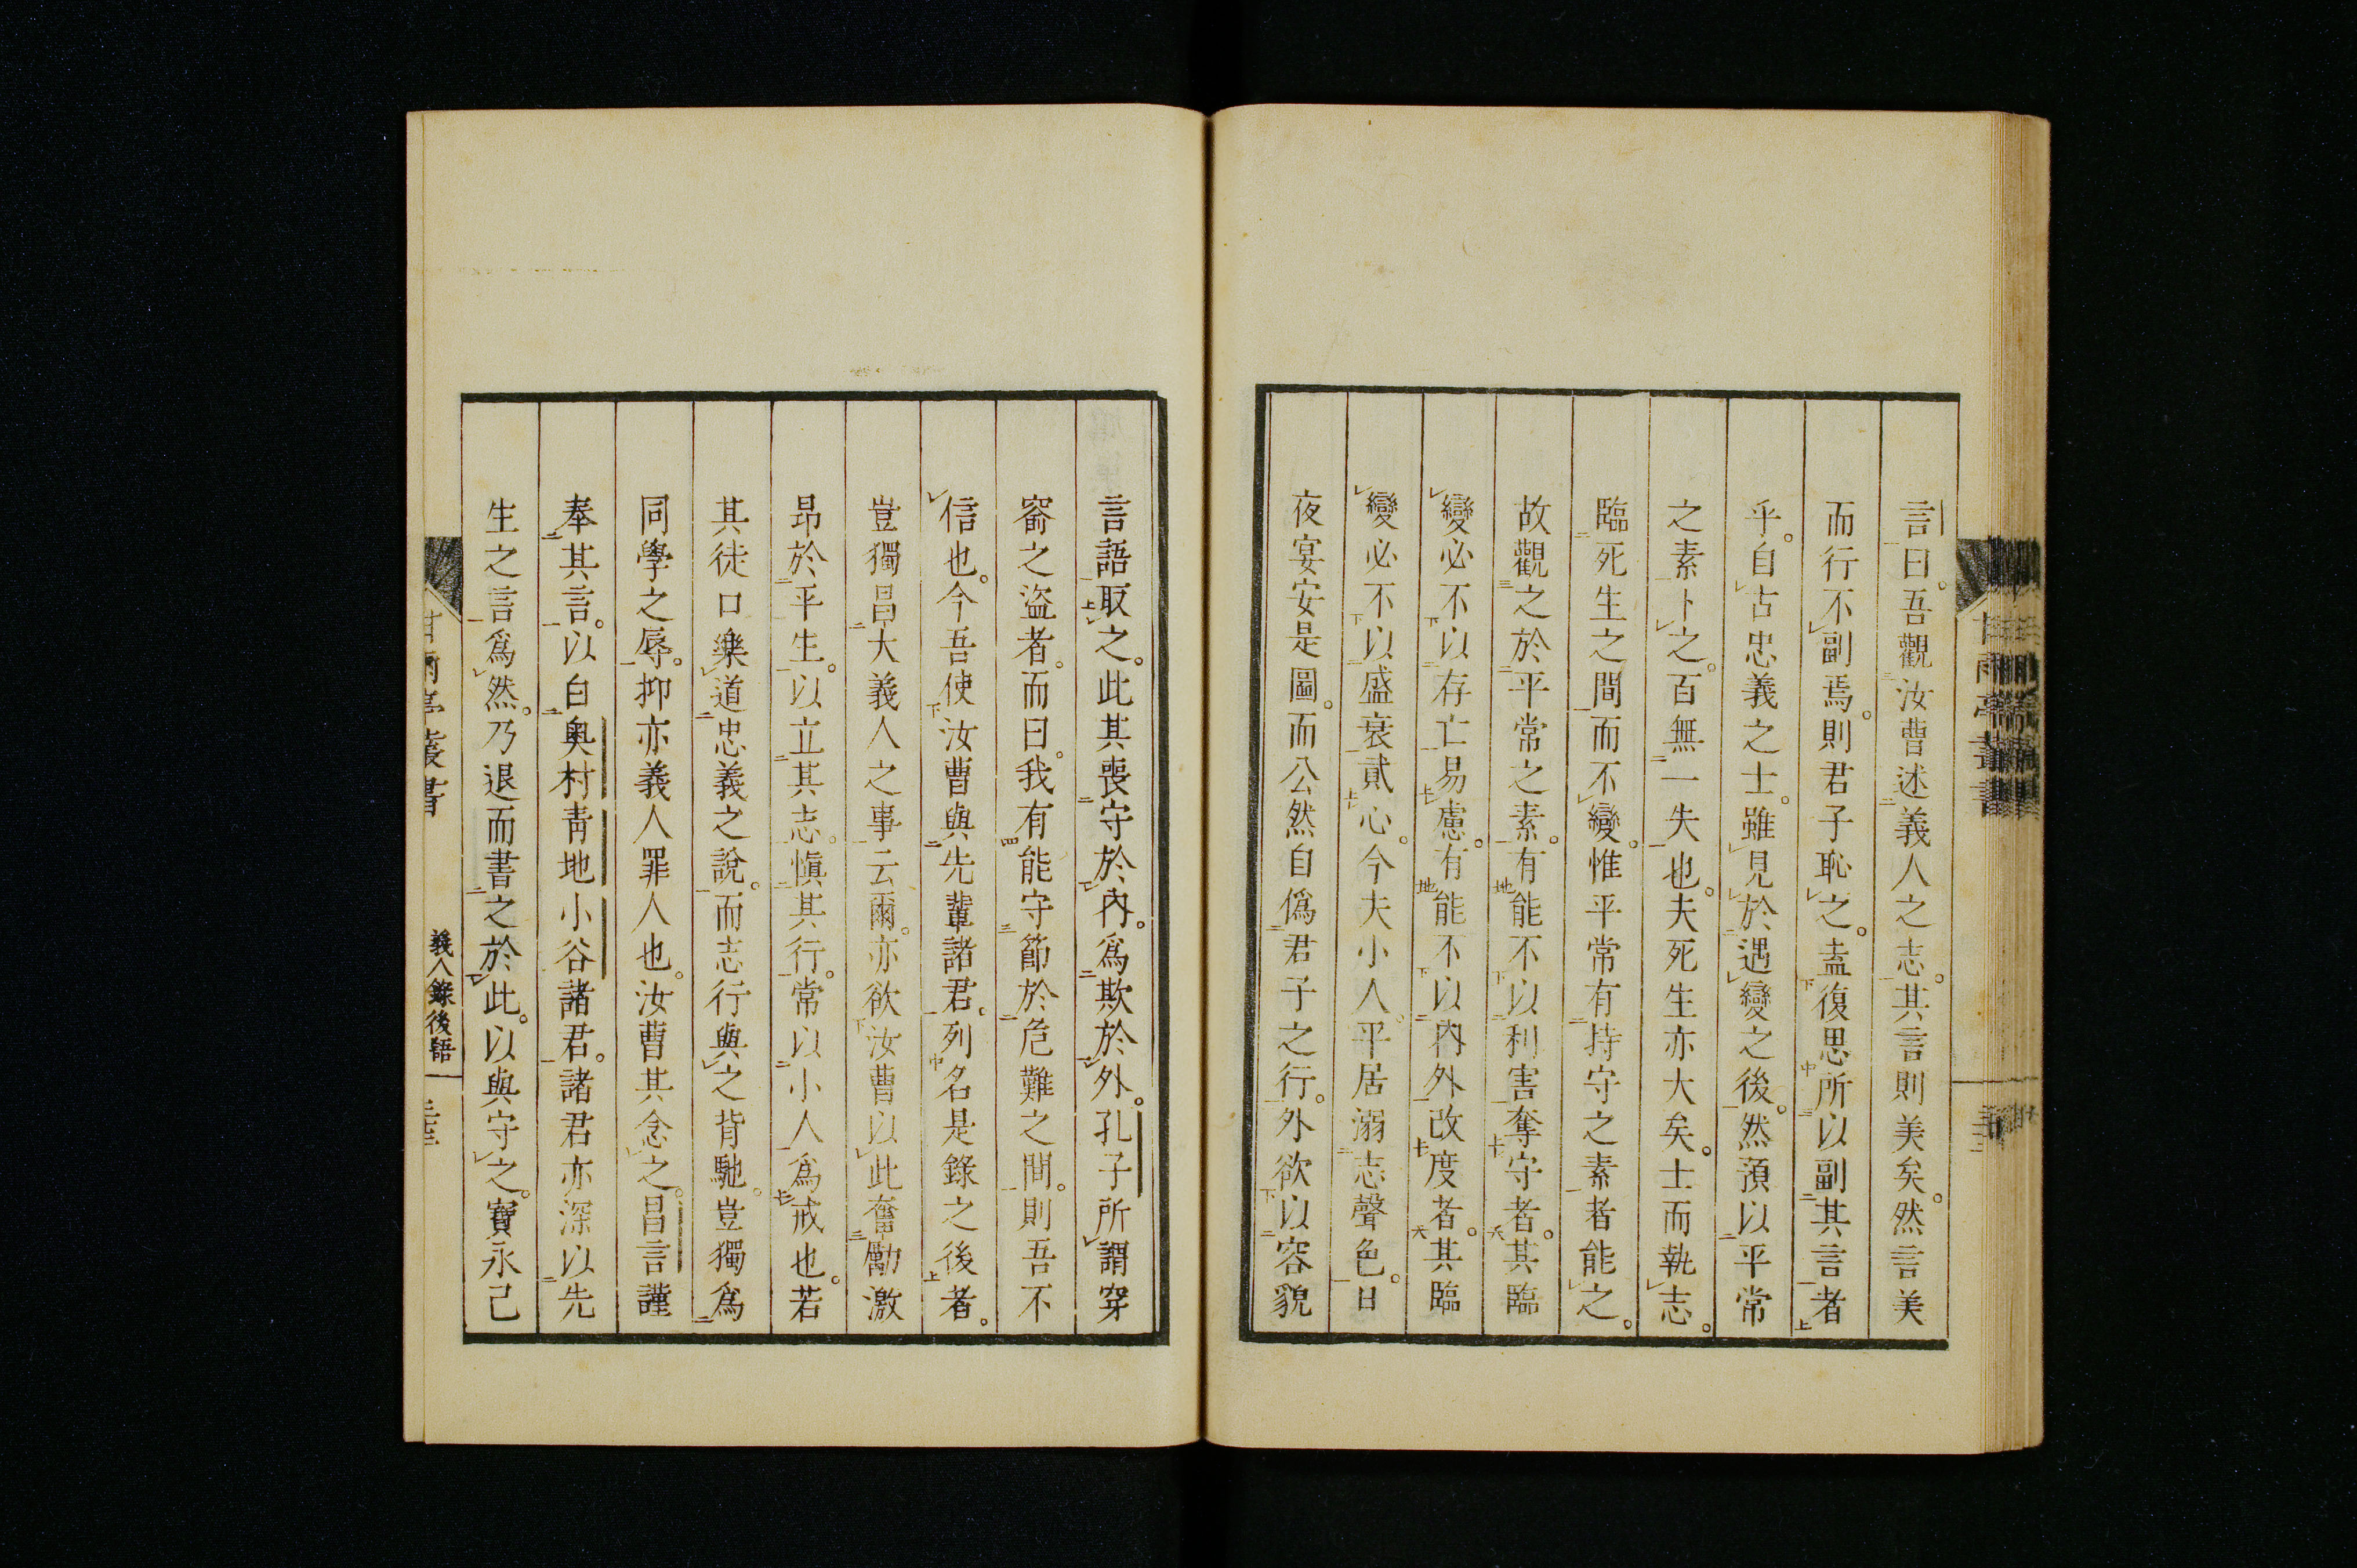 言曰。吾觀汝曹述義人之志。其言則美矣。然言美
而行不副焉。則君子恥之。盍復思所以副其言者
乎。自古忠義之士。雖見於遇變之後。然預以平常
之素卜之。百無一失也。夫死生亦大矣。士而執志。
臨死生之間而不變。惟平常有持守之素者能之。
故觀之於平常之素。有能不以利害奪守者。其臨
變必不以存亡易慮。有能不以內外改度者。其臨
變必不以盛衰貳心。今夫小人。平居溺志聲色。日
夜宴安是圖。而公然自僞君子之行。外欲以容貌
言語取之。此其喪守於內。爲欺於外。孔子所謂穿
窬之盜者。而曰。我有能守節於危難之間。則吾不
信也。今吾使汝曹與先輩諸君。列名是錄之後者。
豈獨昌大義人之事云爾。亦欲汝曹以此奮勵激
昂於平生。以立其志。愼其行。常以小人爲戒也。若
其徒口樂道忠義之說。而志行與之背馳。豈獨爲
同學之辱。抑亦義人罪人也。汝曹其念之。昌言謹
奉其言。以白奧村靑地小谷諸君。諸君亦深以先
生之言爲然。乃退而書之於此。以與守之。寶永己
甘雨亭叢書
義人錄後語